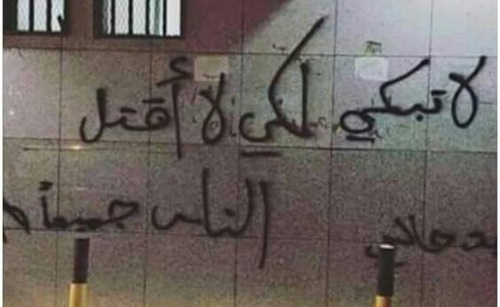 لا تبكي لكي لا أقتل
الناس جميعاً